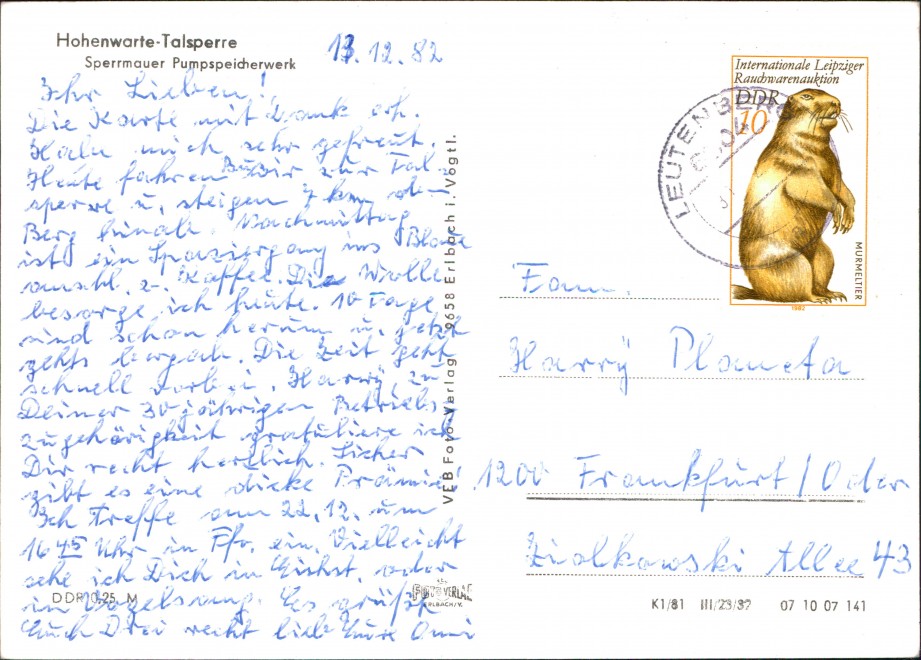 Hohenwarte-Talsperre
Sperrmauer Pumpspeicherwerk
13.12.82
Ihr Lieben!
Die Karte mit Dank erh.
Habe mich sehr gefreut.
Heute fahren wir zur Tal-
sperre u. steigen 7 km
Berg hinab. Nachmittag
ist ein Spaziergang ins Blaue
anschl. z. Kaffee. Die Wolle
besorge ich heute. 10 Tage
sind schon herum u. jetzt
gehts bergab. Die Zeit geht
schnell vorbei. Harry, zu
Deiner 30 jährigen Betriebs-
zugehörigkeit gratuliere ich
Dir recht herzlich. Sicher
gibt es eine dicke Prämie!
Ich treffe am 22.12. um
16 45 Uhr in Ffo. ein. Vielleicht
sehe ich Dich in oder
in Vogelsang. Es grüßt
Euch Drei recht lieb Eure Omi
DDR 0,25 M
VEB Foto-Verlag 9658 Erlbach i. Vogtl.
FOTO VERLAG
ERLBACH/V.
Internationale Leipziger
Rauchwarenauktion
DDR
10
MURMELTIER
1982
LEUTENBERG
Fam.
Harry Planeta
1200 Frankfurt/Oder
Ziolkowski Allee 43
K1/81 III/23/37 07 10 07 141